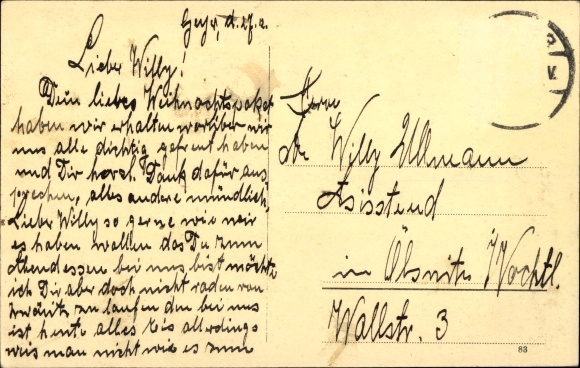 Geyer, d. 27. 12.
Lieber Willy!
Dein liebes Weihnachtspaket
haben wir erhalten worüber wir
uns alle dichtig gefreut haben
und Dir herzl. Dank dafür aus
sprechen, alles andere mündlich.
Lieber Willy so gerne wie wir
es haben wollen das Du zum
Abendessen bei uns bist möchte
ich Dir aber doch nicht raden von
zu laufen den bei uns
ist heute alles Eis allerdings
weis man nicht wie es zum
Herrn
Dr Willy Ullmann
Assistend
in Ölsnitz i/Vogtl.
Wallstr. 3
83